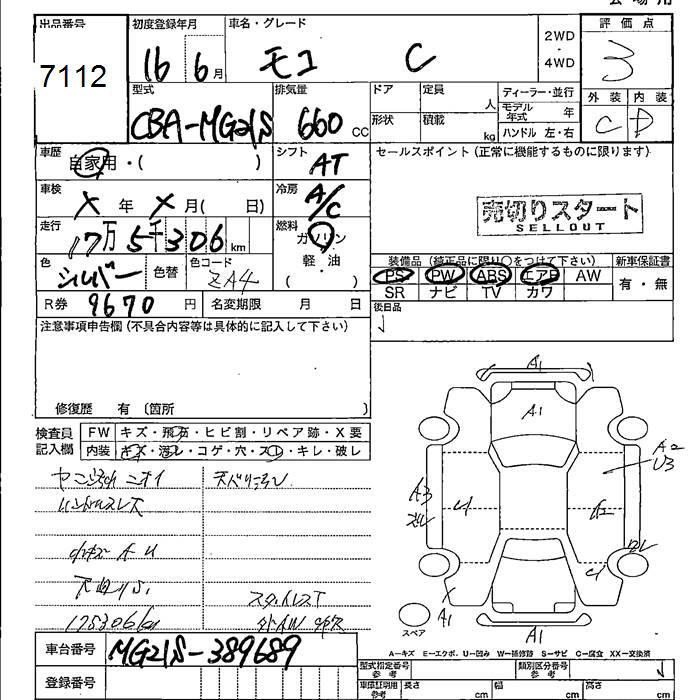 会場用
出品番号 初度登録年月 車名・グレード 2WD・4WD 評価点
7112 16 6月 モコ C 3
型式 排気量 ドア 定員 人 ディーラー・並行 外装 内装
CBA-MG21S 660 CC 形状 積載 kg モデル年式 年 ハンドル 左・右 C D
車歴 自家用・( ) シフト AT セールスポイント(正常に機能するものに限ります)
車検 X 年 X 月( 日) 冷房 A/C
売切りスタート
SELLOUT
走行 17万5千306km 燃料 ガソリン 軽・油
色 シルバー 色替 色コード ZA4 装備品(純正品に限り○をつけて下さい) 新車保証書
PS PW ABS エアB AW 有・無
SR ナビ TV カワ
R券 9670円 名変期限 月 日 後日品
注意事項申告欄(不具合内容等は具体的に記入して下さい)
修復歴 有〔箇所 〕
検査員記入欄 FW キズ・飛石・ヒビ割・リペア跡・X要
内装 キズ・汚レ・コゲ・穴・スレ・キレ・破レ
ニオイ
ハンドルスレ
175306km
A1
A1
A2
U3
A3
A2
A1
A1
スペア
A-キズ E-エクボ U-凹み W-補修跡 S-サビ C-腐食 XX-交換済
車台番号 MG21S-389689
型式指定番号 参考 類別区分番号 参考
登録番号 車庫証明用 参考 長さ cm 幅 cm 高さ cm